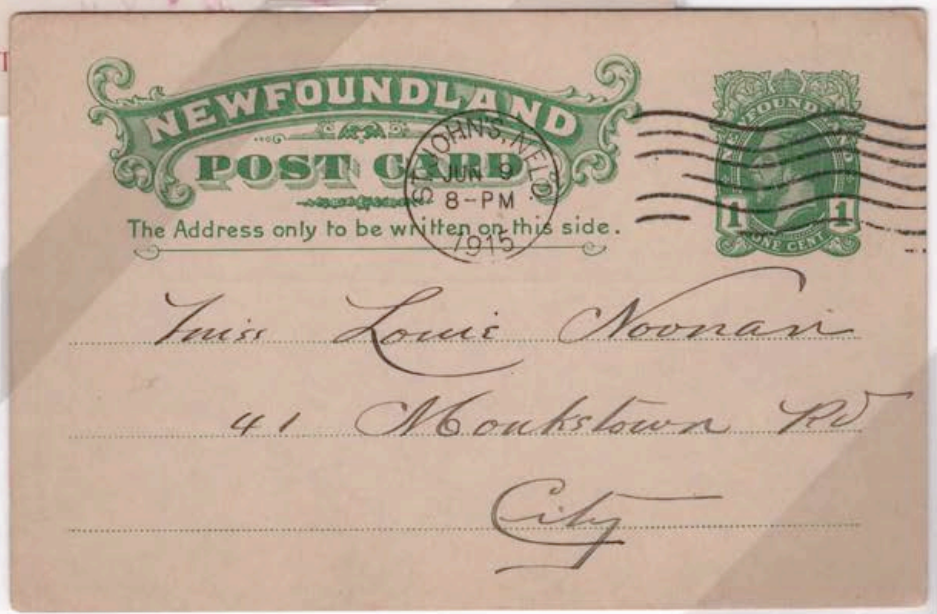 NEWFOUNDLAND
POST CARD
The Address only to be written on this side.
ST. JOHN'S, NFLD.
JUN 9
8-PM
1915
NEWFOUNDLAND
1 1
ONE CENT
Miss Louie Noonan
41 Monkstown Rd
City